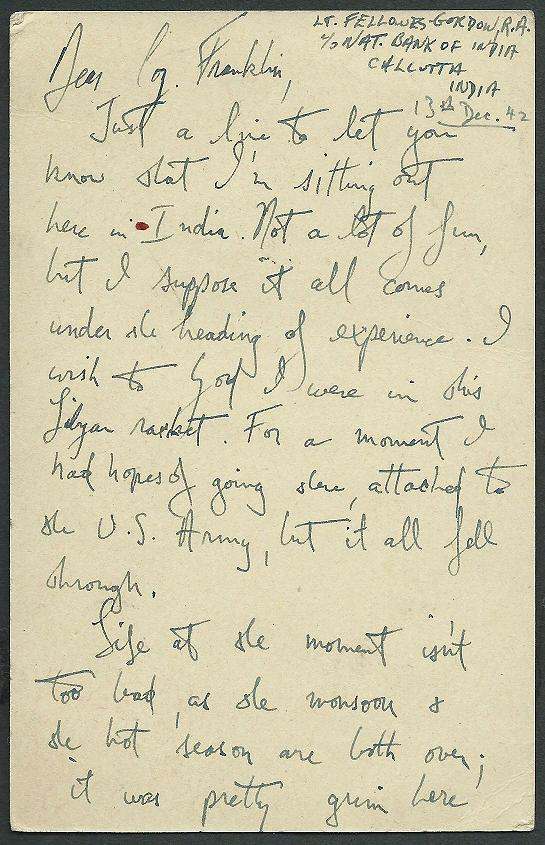 LT. FELLOWES-GORDON, R.A.
c/o NAT. BANK OF INDIA
CALCUTTA
INDIA
13th Dec. 42
Dear Franklin,
Just a line to let you
know that I'm sitting out
here in India. Not a lot of fun,
but I suppose it all comes
under the heading of experience. I
wish to God I were in this
Libyan racket. For a moment I
had hopes of going there, attached to
the U.S. Army, but it all fell
through.
Life at the moment isn't
too bad, as the monsoon &
the hot season are both over;
it was pretty grim here